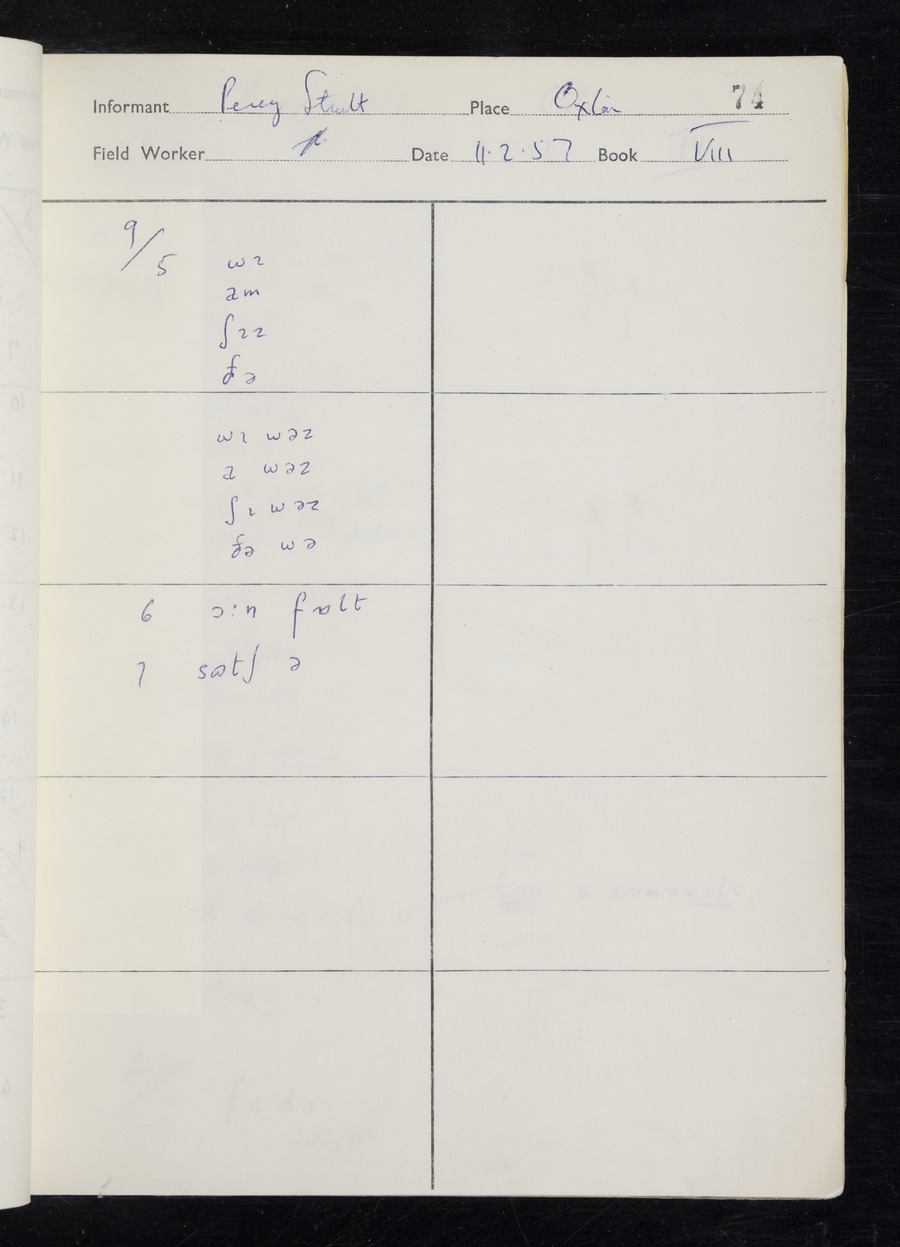 Informant Percy Strutt Place Oxlip 74
Field Worker Date 11.2.57 Book VIII
9/5 wɪ
am
ʃɪz
ðə
wɪ wəz
a wəz
ʃɪ wəz
ðə wə
6 ɔ:n fɒlt
7 satʃ ə